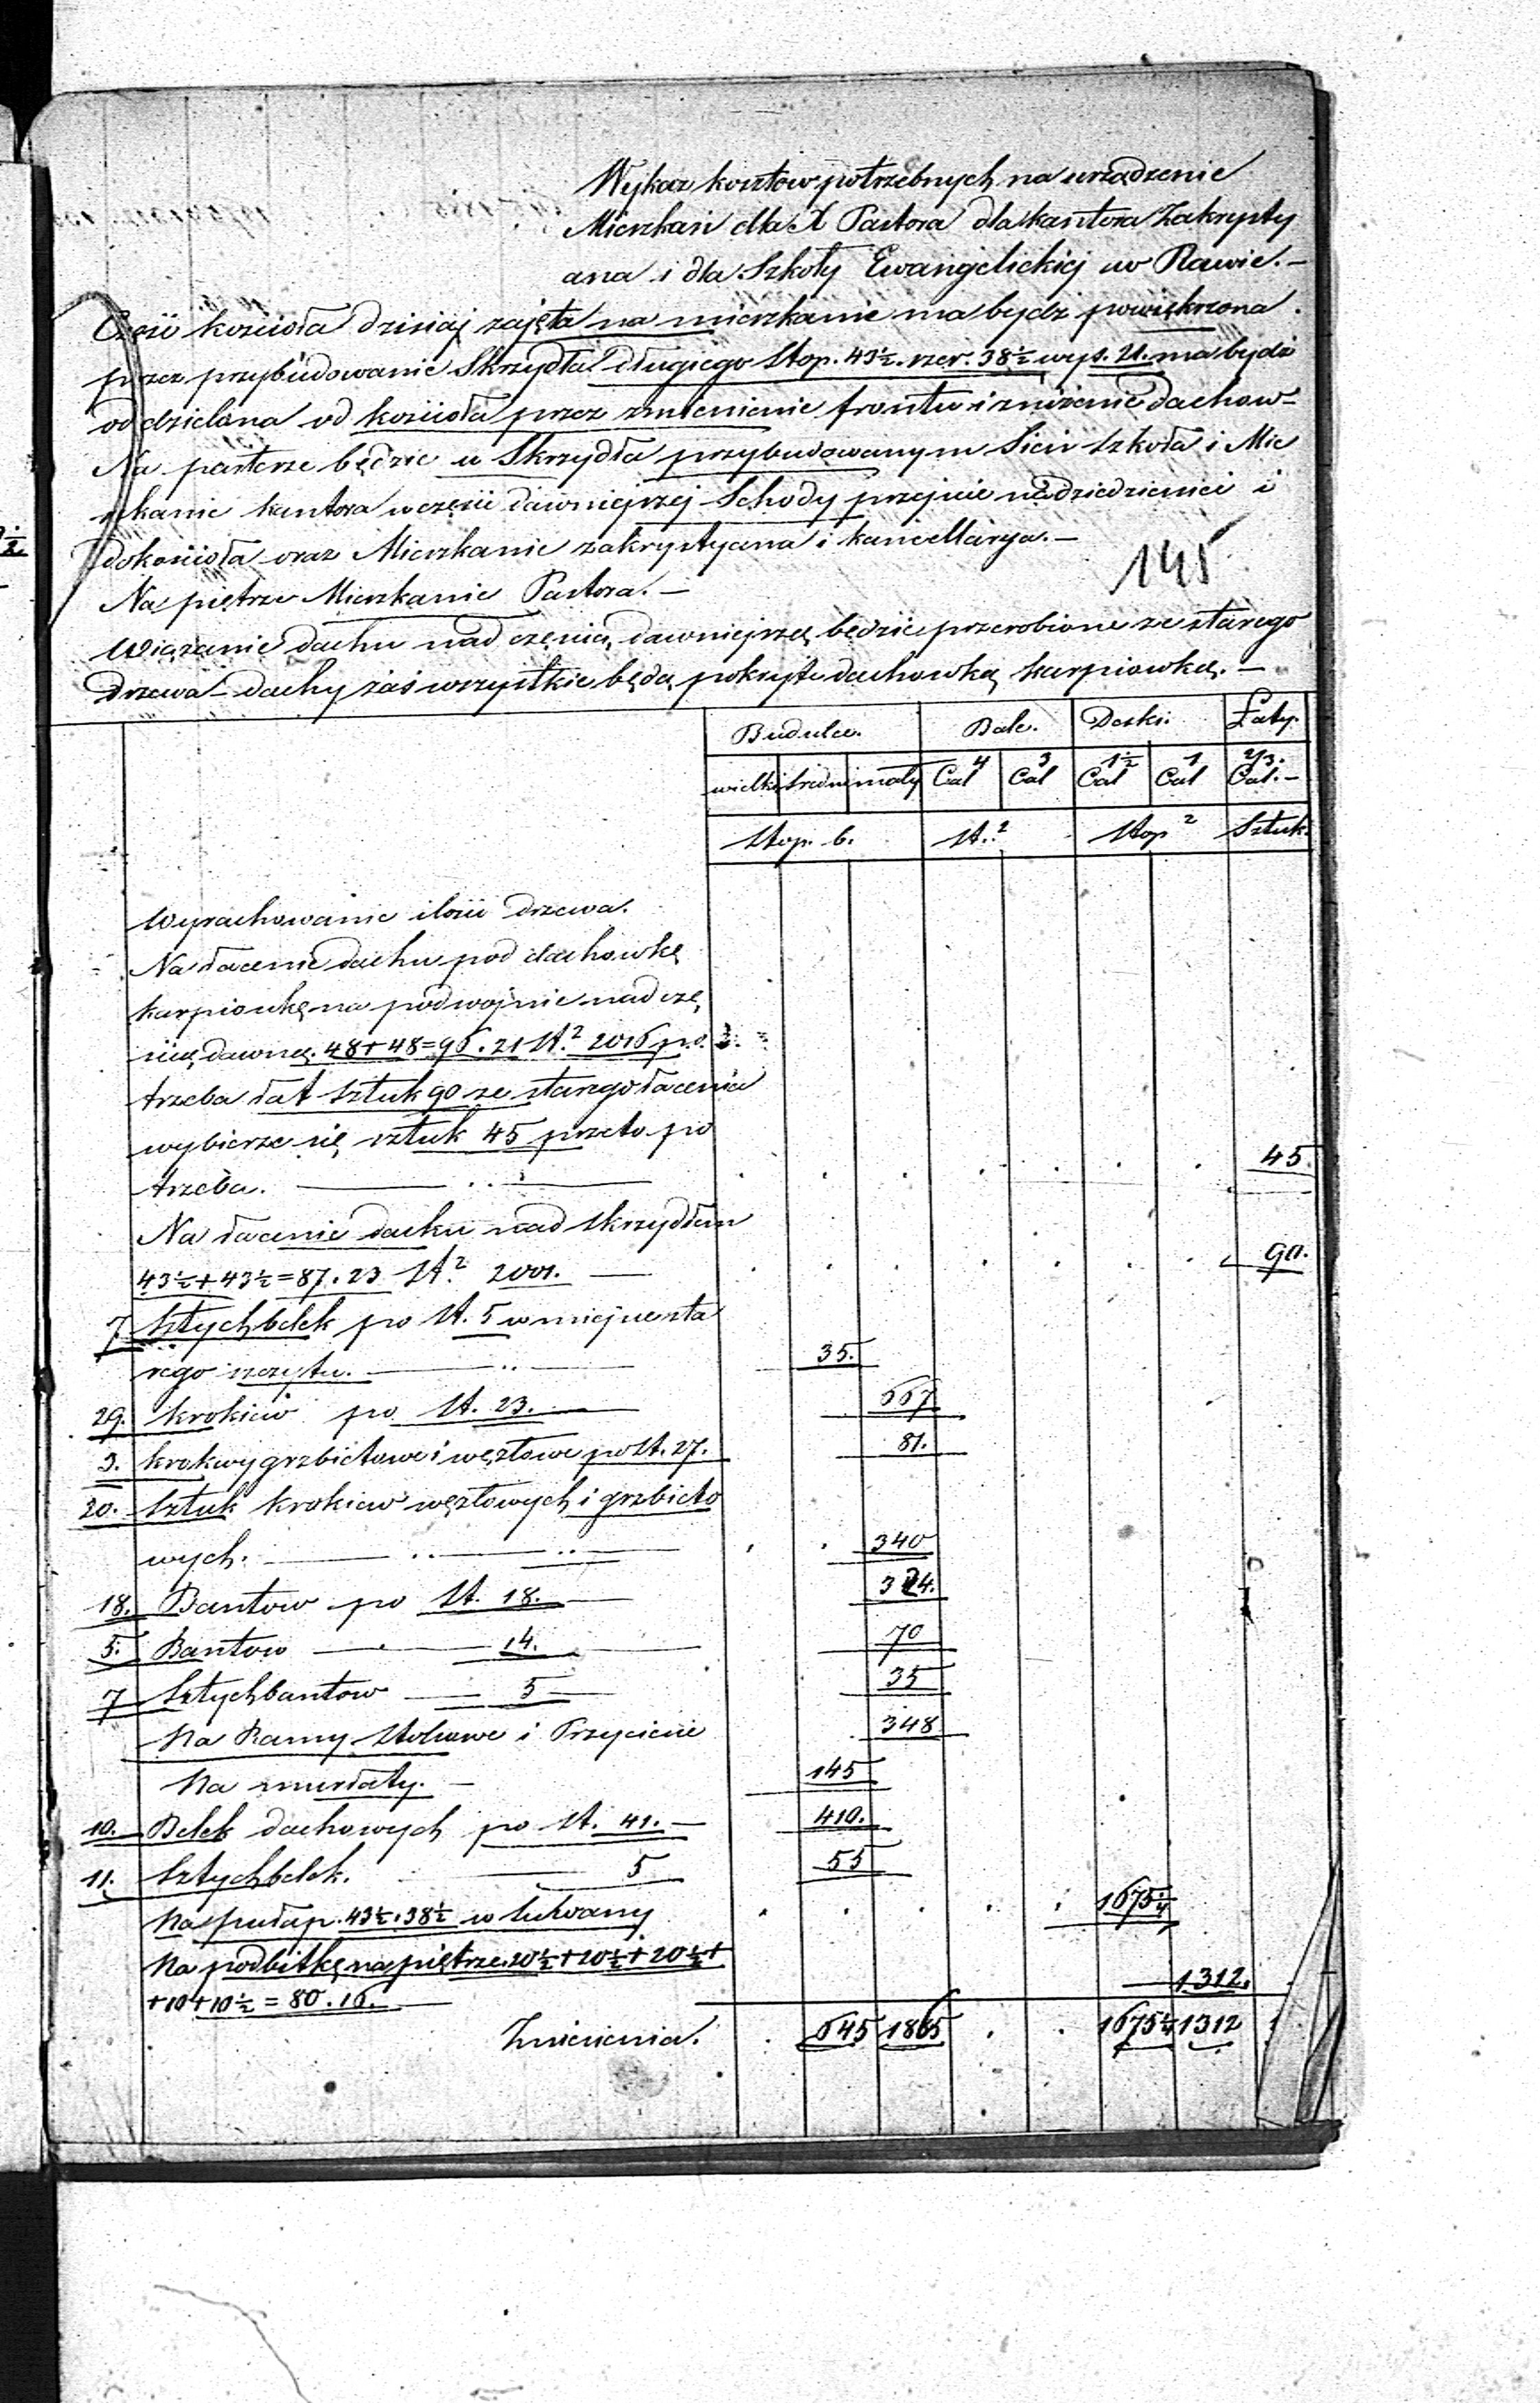 Wykaz kosztow potrzebnych na urządzenie
Mieszkań dla X Pastora dla kantora Zakrysty
ana i dla Szkoły Ewangelickiej w Rawie.-
Części kościoła dzisiaj zajęta na mieszkanie ma bydź powiększona
przez przybudowanie Skrzydła długiego Stop. 43½. szer. 38½ wys. 21. ma bydź
oddzielona od kościoła przez zmienienie frontu i zniżenie dachow-
Na parterze będzie w Skrzydła przybudowanym Sień Szkoła i Mie
szkanie kantora w części dawniejszej Schody przejście na dziedziniec i
do kościoła oraz Mieszkanie zakrystyana i kancellarya.-
145
Na piętrze Mieszkanie Pastora.-
Wiązanie dachu nad częścią dawniejszą będzie przerobione ze starego
drzewa - dachy zaś wszystkie będą pokryte dachowką karpiowką.-
Budulce. Bale. Deski. Łaty.
wielki średni mały 4 Cal 3 Cal 1½ Cal 1 Cal 2/3. Cal.-
Stop. b. St.² Stop² Sztuk.
Wyrachowanie ilości drzewa.
Na łacenie dachu pod dachowkę
karpiowkę na podwojnie nad czę
ścią dawną. 48+48=96.21 St.² 2016 po
trzeba łat Sztuk 90 ze starego łacenia
wybierze się sztuk 45 przeto po
trzeba. 45
Na łacenie dachu nad skrzydłem
43½+43½=87.23 St.² 2001. 90.
7 Sztychbelek po St. 5 w miejsce sta
rego szczytu. 35.
29. krokiew po St. 23. 667
3. krokwy grzbietowe i węzłowe po St. 27. 81.
20. Sztuk krokiew węzłowych i grzbieto
wych. 340
18. Bantow po St. 18. 324.
5. Bantow 14. 70
7 Sztychbantow 5 35
Na Ramy Stolcowe i Przyciesie 348
Na murłaty. 145
10. Belek dachowych po St. 41. 410.
11. Sztychbelek. 5 55
Na pułap. 43½.38½ w 1675¼
Na podbitkę na piętrze. 20½+20½+20½+
+10+10½=80.16. 1312.
Zniesienia. 645 1865 1675¼ 1312